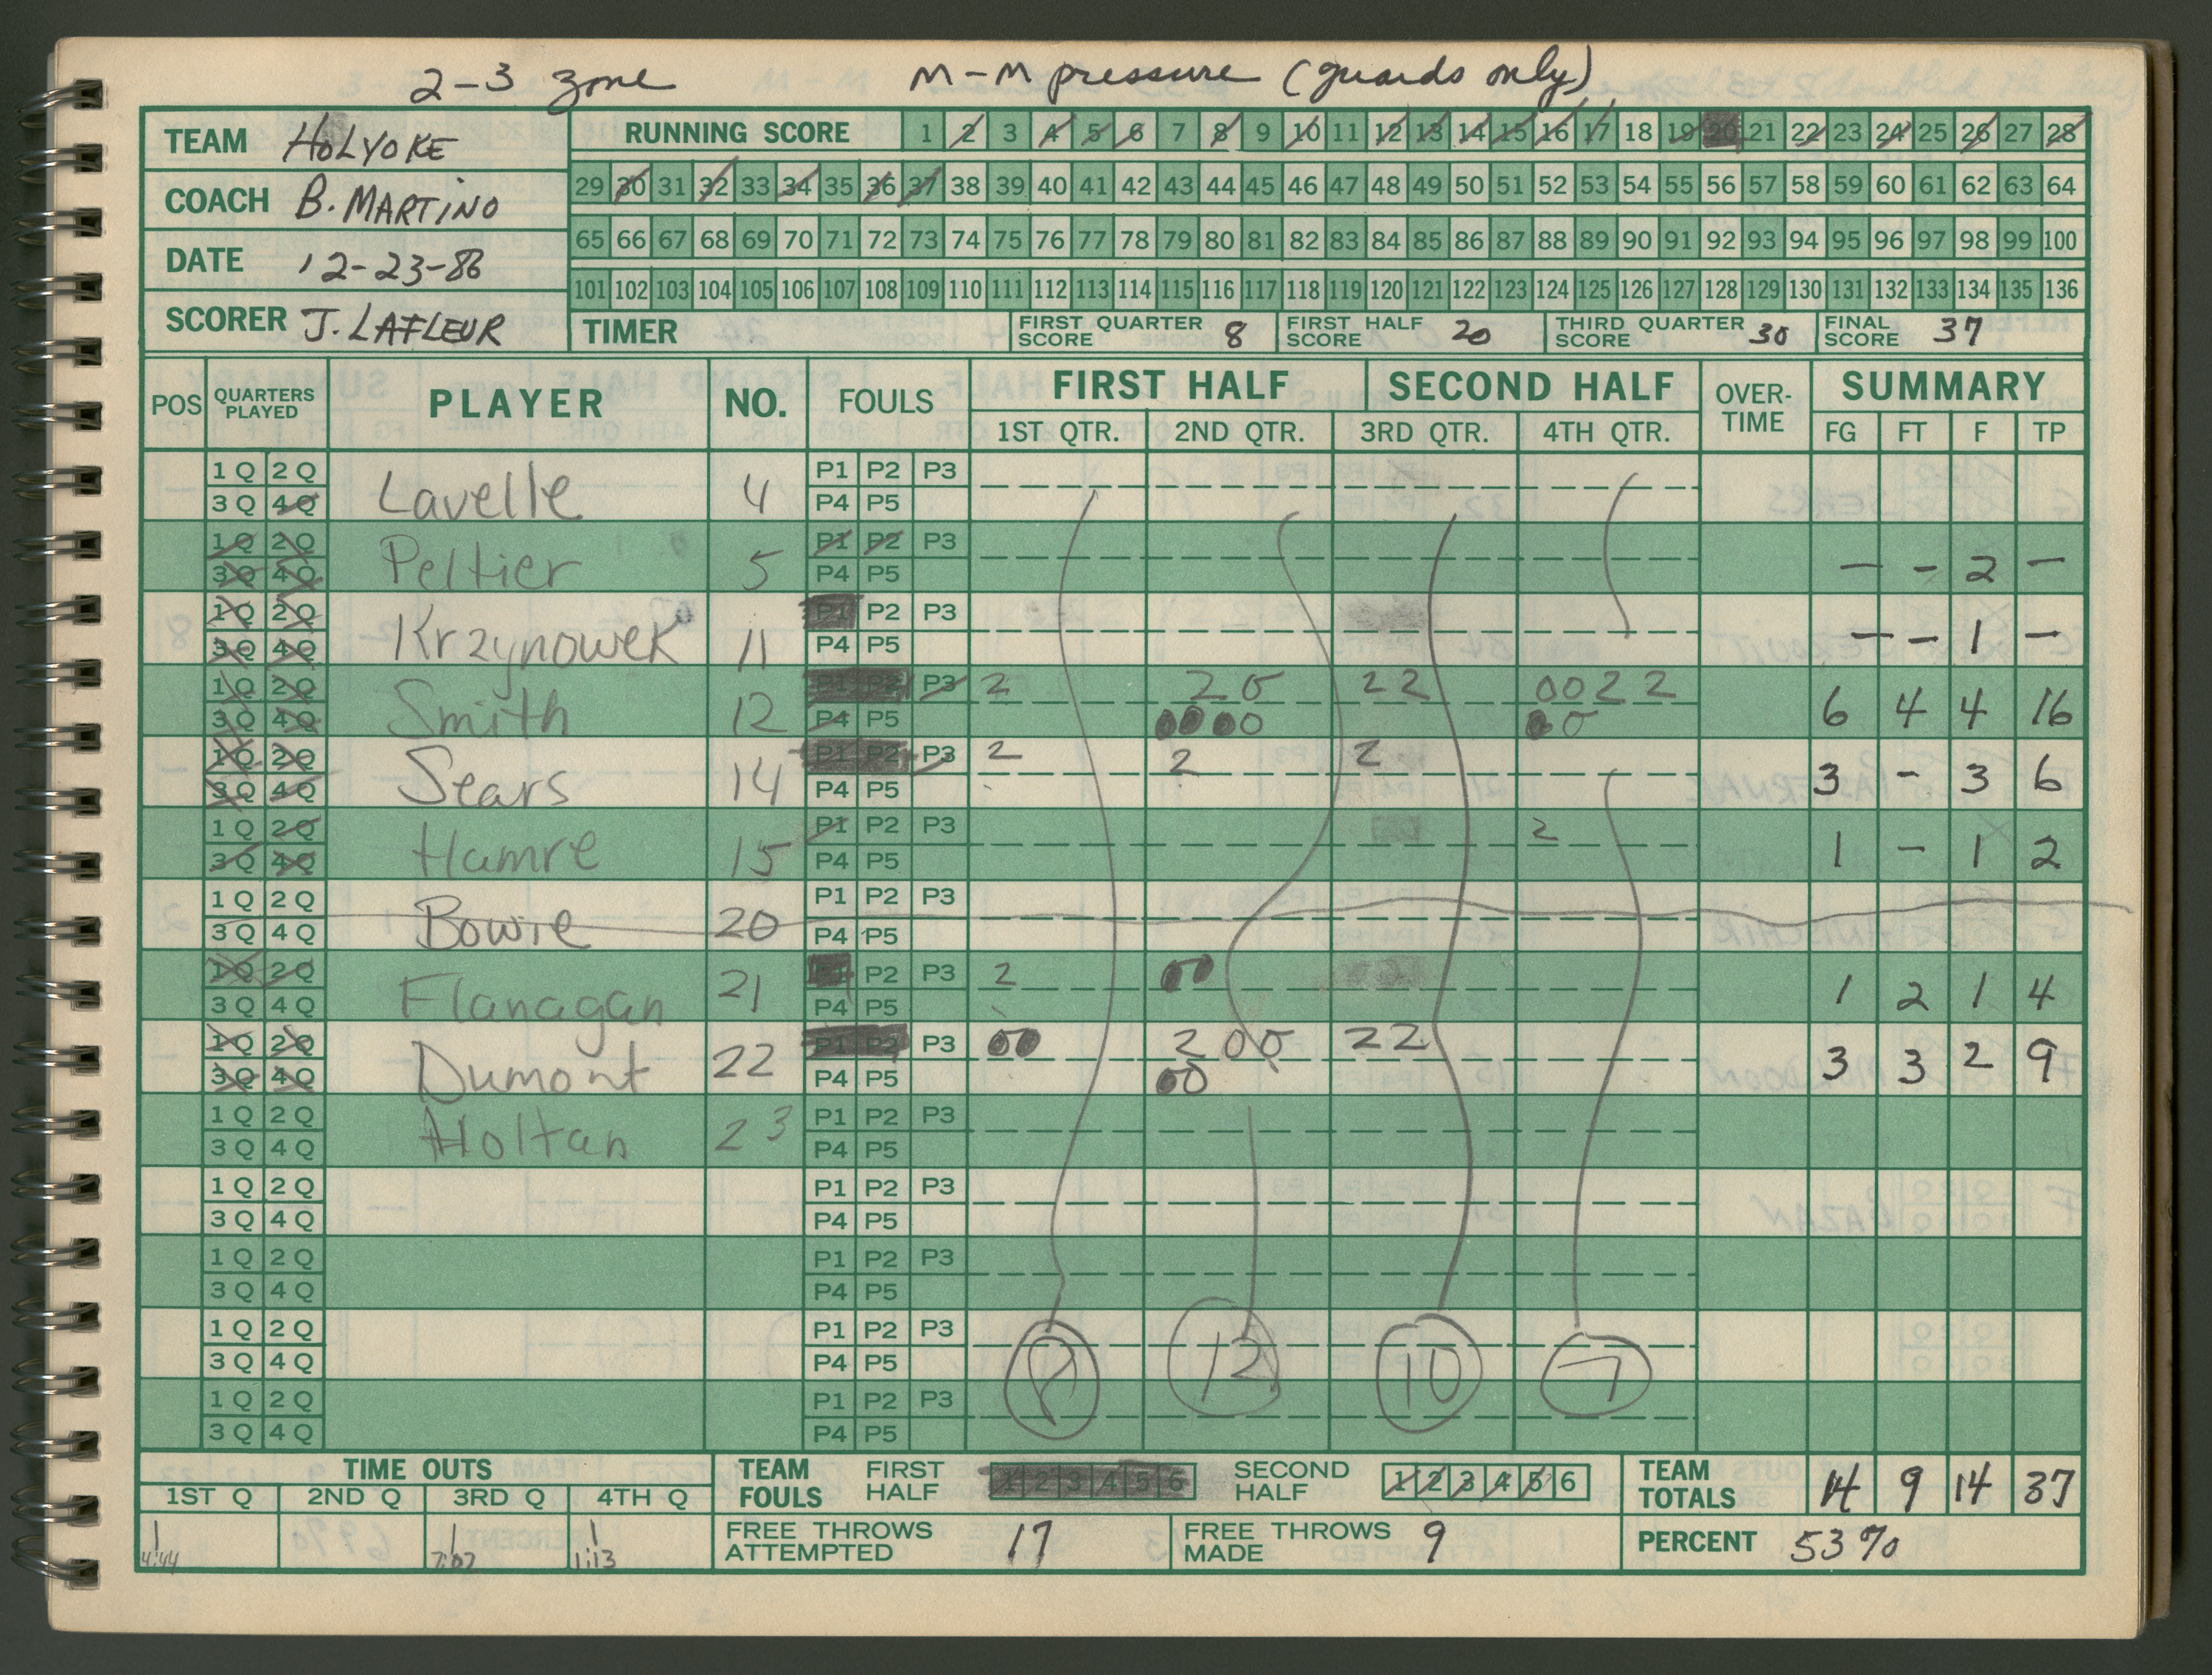 2-3 zone M-M pressure (guards only)
TEAM HOLYOKE
COACH B. MARTINO
DATE 12-23-86
SCORER J. LAFLEUR
RUNNING SCORE 1 2 3 4 5 6 7 8 9 10 11 12 13 14 15 16 17 18 19 20 21 22 23 24 25 26 27 28
29 30 31 32 33 34 35 36 37 38 39 40 41 42 43 44 45 46 47 48 49 50 51 52 53 54 55 56 57 58 59 60 61 62 63 64
65 66 67 68 69 70 71 72 73 74 75 76 77 78 79 80 81 82 83 84 85 86 87 88 89 90 91 92 93 94 95 96 97 98 99 100
101 102 103 104 105 106 107 108 109 110 111 112 113 114 115 116 117 118 119 120 121 122 123 124 125 126 127 128 129 130 131 132 133 134 135 136
TIMER FIRST QUARTER SCORE 8 FIRST HALF SCORE 20 THIRD QUARTER SCORE 30 FINAL SCORE 37
POS QUARTERS PLAYED PLAYER NO. FOULS FIRST HALF SECOND HALF OVER-TIME SUMMARY
1ST QTR. 2ND QTR. 3RD QTR. 4TH QTR. FG FT F TP
1Q 2Q P1 P2 P3
3Q 4Q Lavelle 4 P4 P5
1Q 2Q P1 P2 P3
3Q 4Q Peltier 5 P4 P5 — - 2 —
1Q 2Q P1 P2 P3
3Q 4Q Krzynowek 11 P4 P5 — - 1 —
1Q 2Q P1 P2 P3 2 2 0 2 2 0 0 2 2
3Q 4Q Smith 12 P4 P5 0 0 0 0 0 0 6 4 4 16
1Q 2Q P1 P2 P3 2 2 2
3Q 4Q Sears 14 P4 P5 3 - 3 6
1Q 2Q P1 P2 P3 2
3Q 4Q Hamre 15 P4 P5 1 - 1 2
1Q 2Q P1 P2 P3
3Q 4Q Bowie 20 P4 P5
1Q 2Q P1 P2 P3 2 0 0
3Q 4Q Flanagan 21 P4 P5 1 2 1 4
1Q 2Q P1 P2 P3 0 0 2 0 0 2 2
3Q 4Q Dumont 22 P4 P5 0 0 3 3 2 9
1Q 2Q P1 P2 P3
3Q 4Q Holtan 23 P4 P5
1Q 2Q P1 P2 P3
3Q 4Q P4 P5
1Q 2Q P1 P2 P3
3Q 4Q P4 P5
1Q 2Q P1 P2 P3
3Q 4Q P4 P5 8 12 10 7
1Q 2Q P1 P2 P3
3Q 4Q P4 P5
TIME OUTS TEAM FOULS FIRST HALF 1 2 3 4 5 6 SECOND HALF 1 2 3 4 5 6 TEAM TOTALS 14 9 14 37
1ST Q 2ND Q 3RD Q 4TH Q
1 1 1
4:44 7:07 1:13
FREE THROWS ATTEMPTED 17 FREE THROWS MADE 9 PERCENT 53%